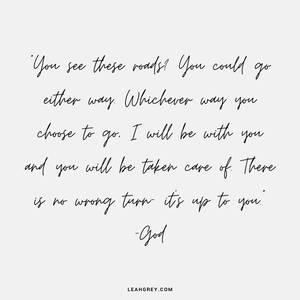 "You see these roads? You could go
either way. Whichever way you
choose to go, I will be with you
and you will be taken care of. There
is no wrong turn- it's up to you."
-God
LEAHGREY.COM